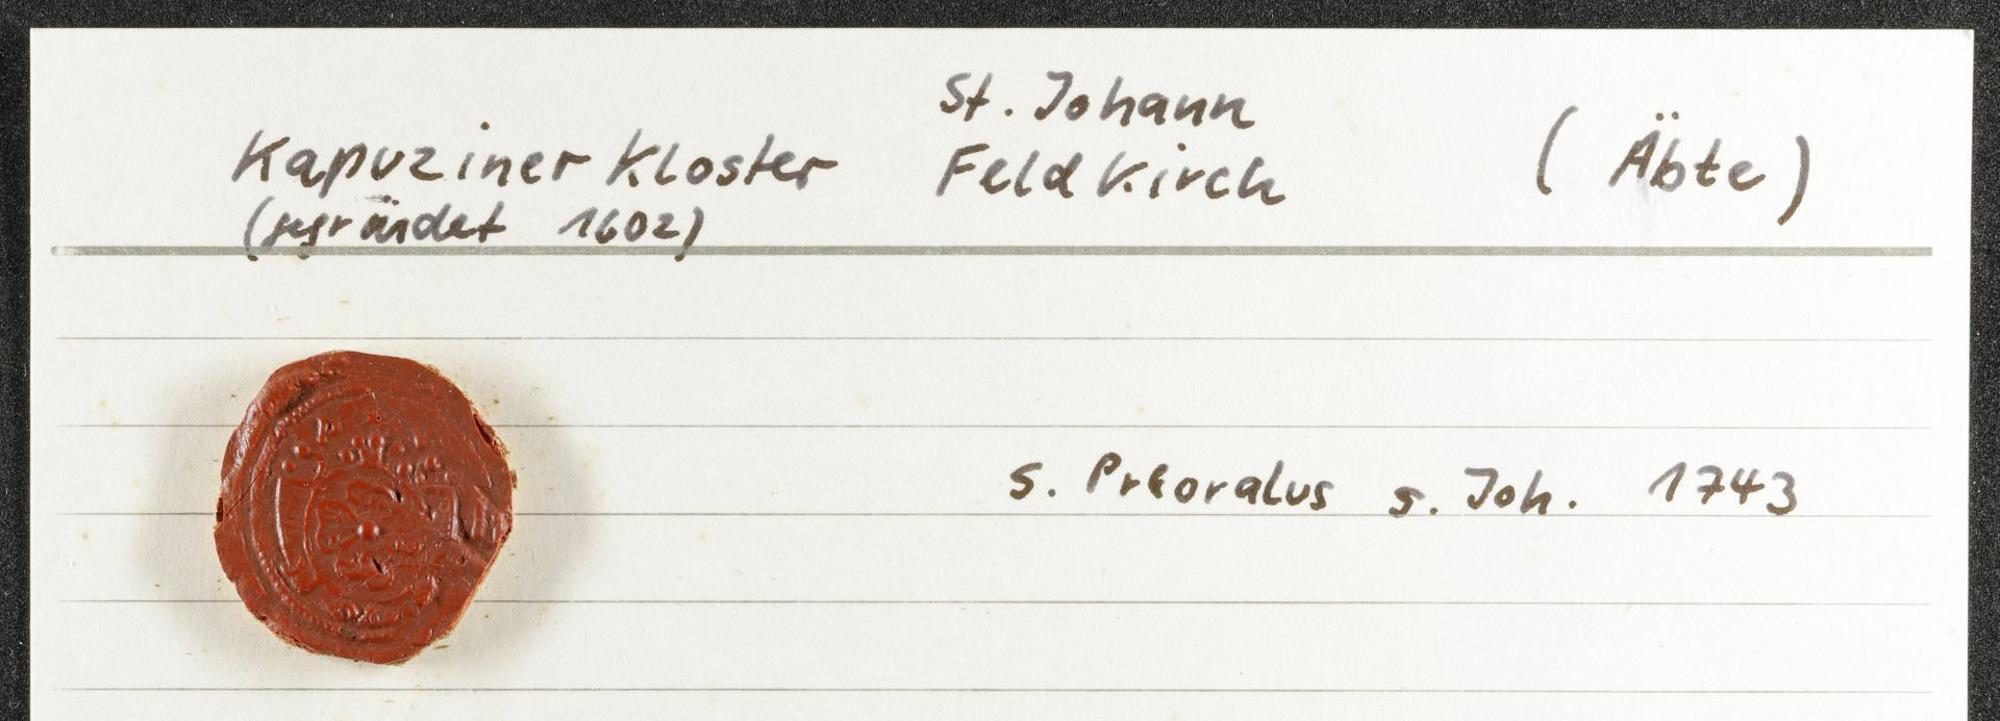 St. Johann
Kapuziner Kloster Feldkirch (Äbte)
(gegründet 1602)
S. Prioralus s. Joh. 1743